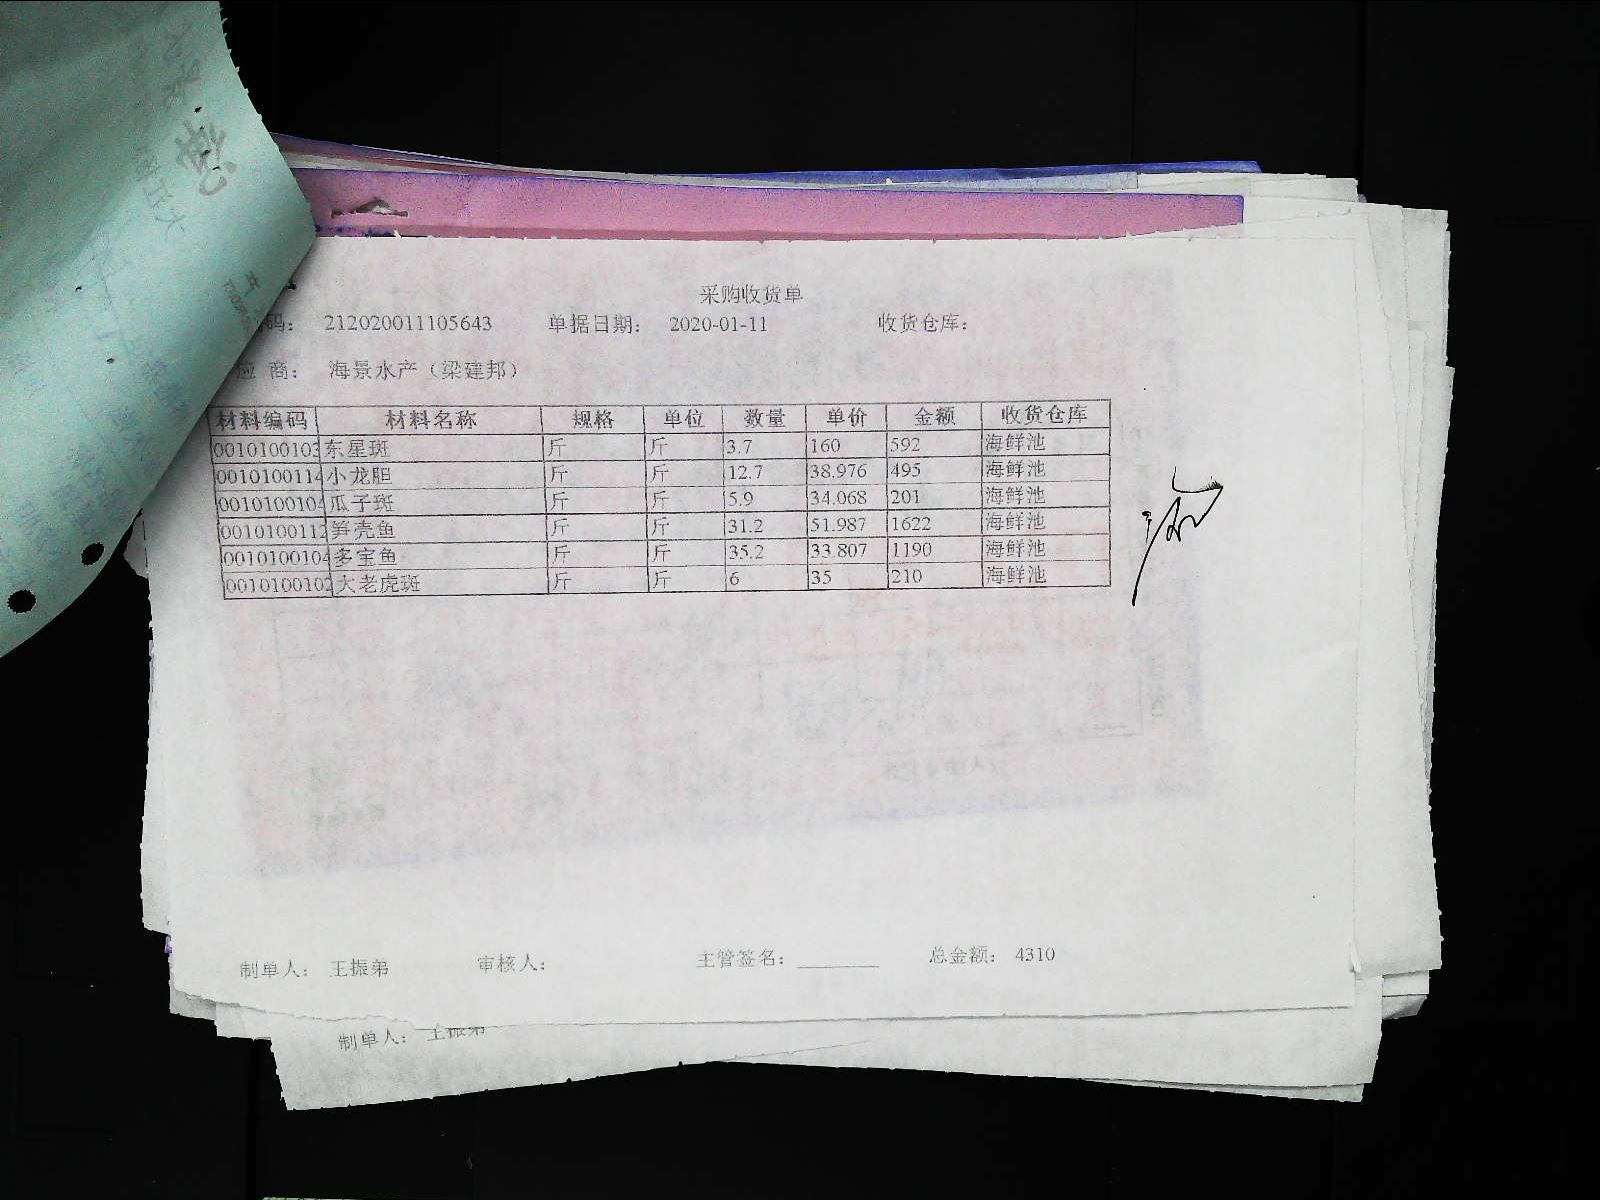 采购收货单
码: 212020011105643 单据日期: 2020-01-11 收货仓库:
应 商: 海景水产（梁建邦）
材料编码 材料名称 规格 单位 数量 单价 金额 收货仓库
0010100103 东星斑 斤 斤 3.7 160 592 海鲜池
0010100114 小龙胆 斤 斤 12.7 38.976 495 海鲜池
0010100104 瓜子斑 斤 斤 5.9 34.068 201 海鲜池
0010100112 笋壳鱼 斤 斤 31.2 51.987 1622 海鲜池
0010100104 多宝鱼 斤 斤 35.2 33.807 1190 海鲜池
0010100102 大老虎斑 斤 斤 6 35 210 海鲜池
制单人: 王振弟 审核人: 主管签名: ________ 总金额: 4310
制单人: 王振弟